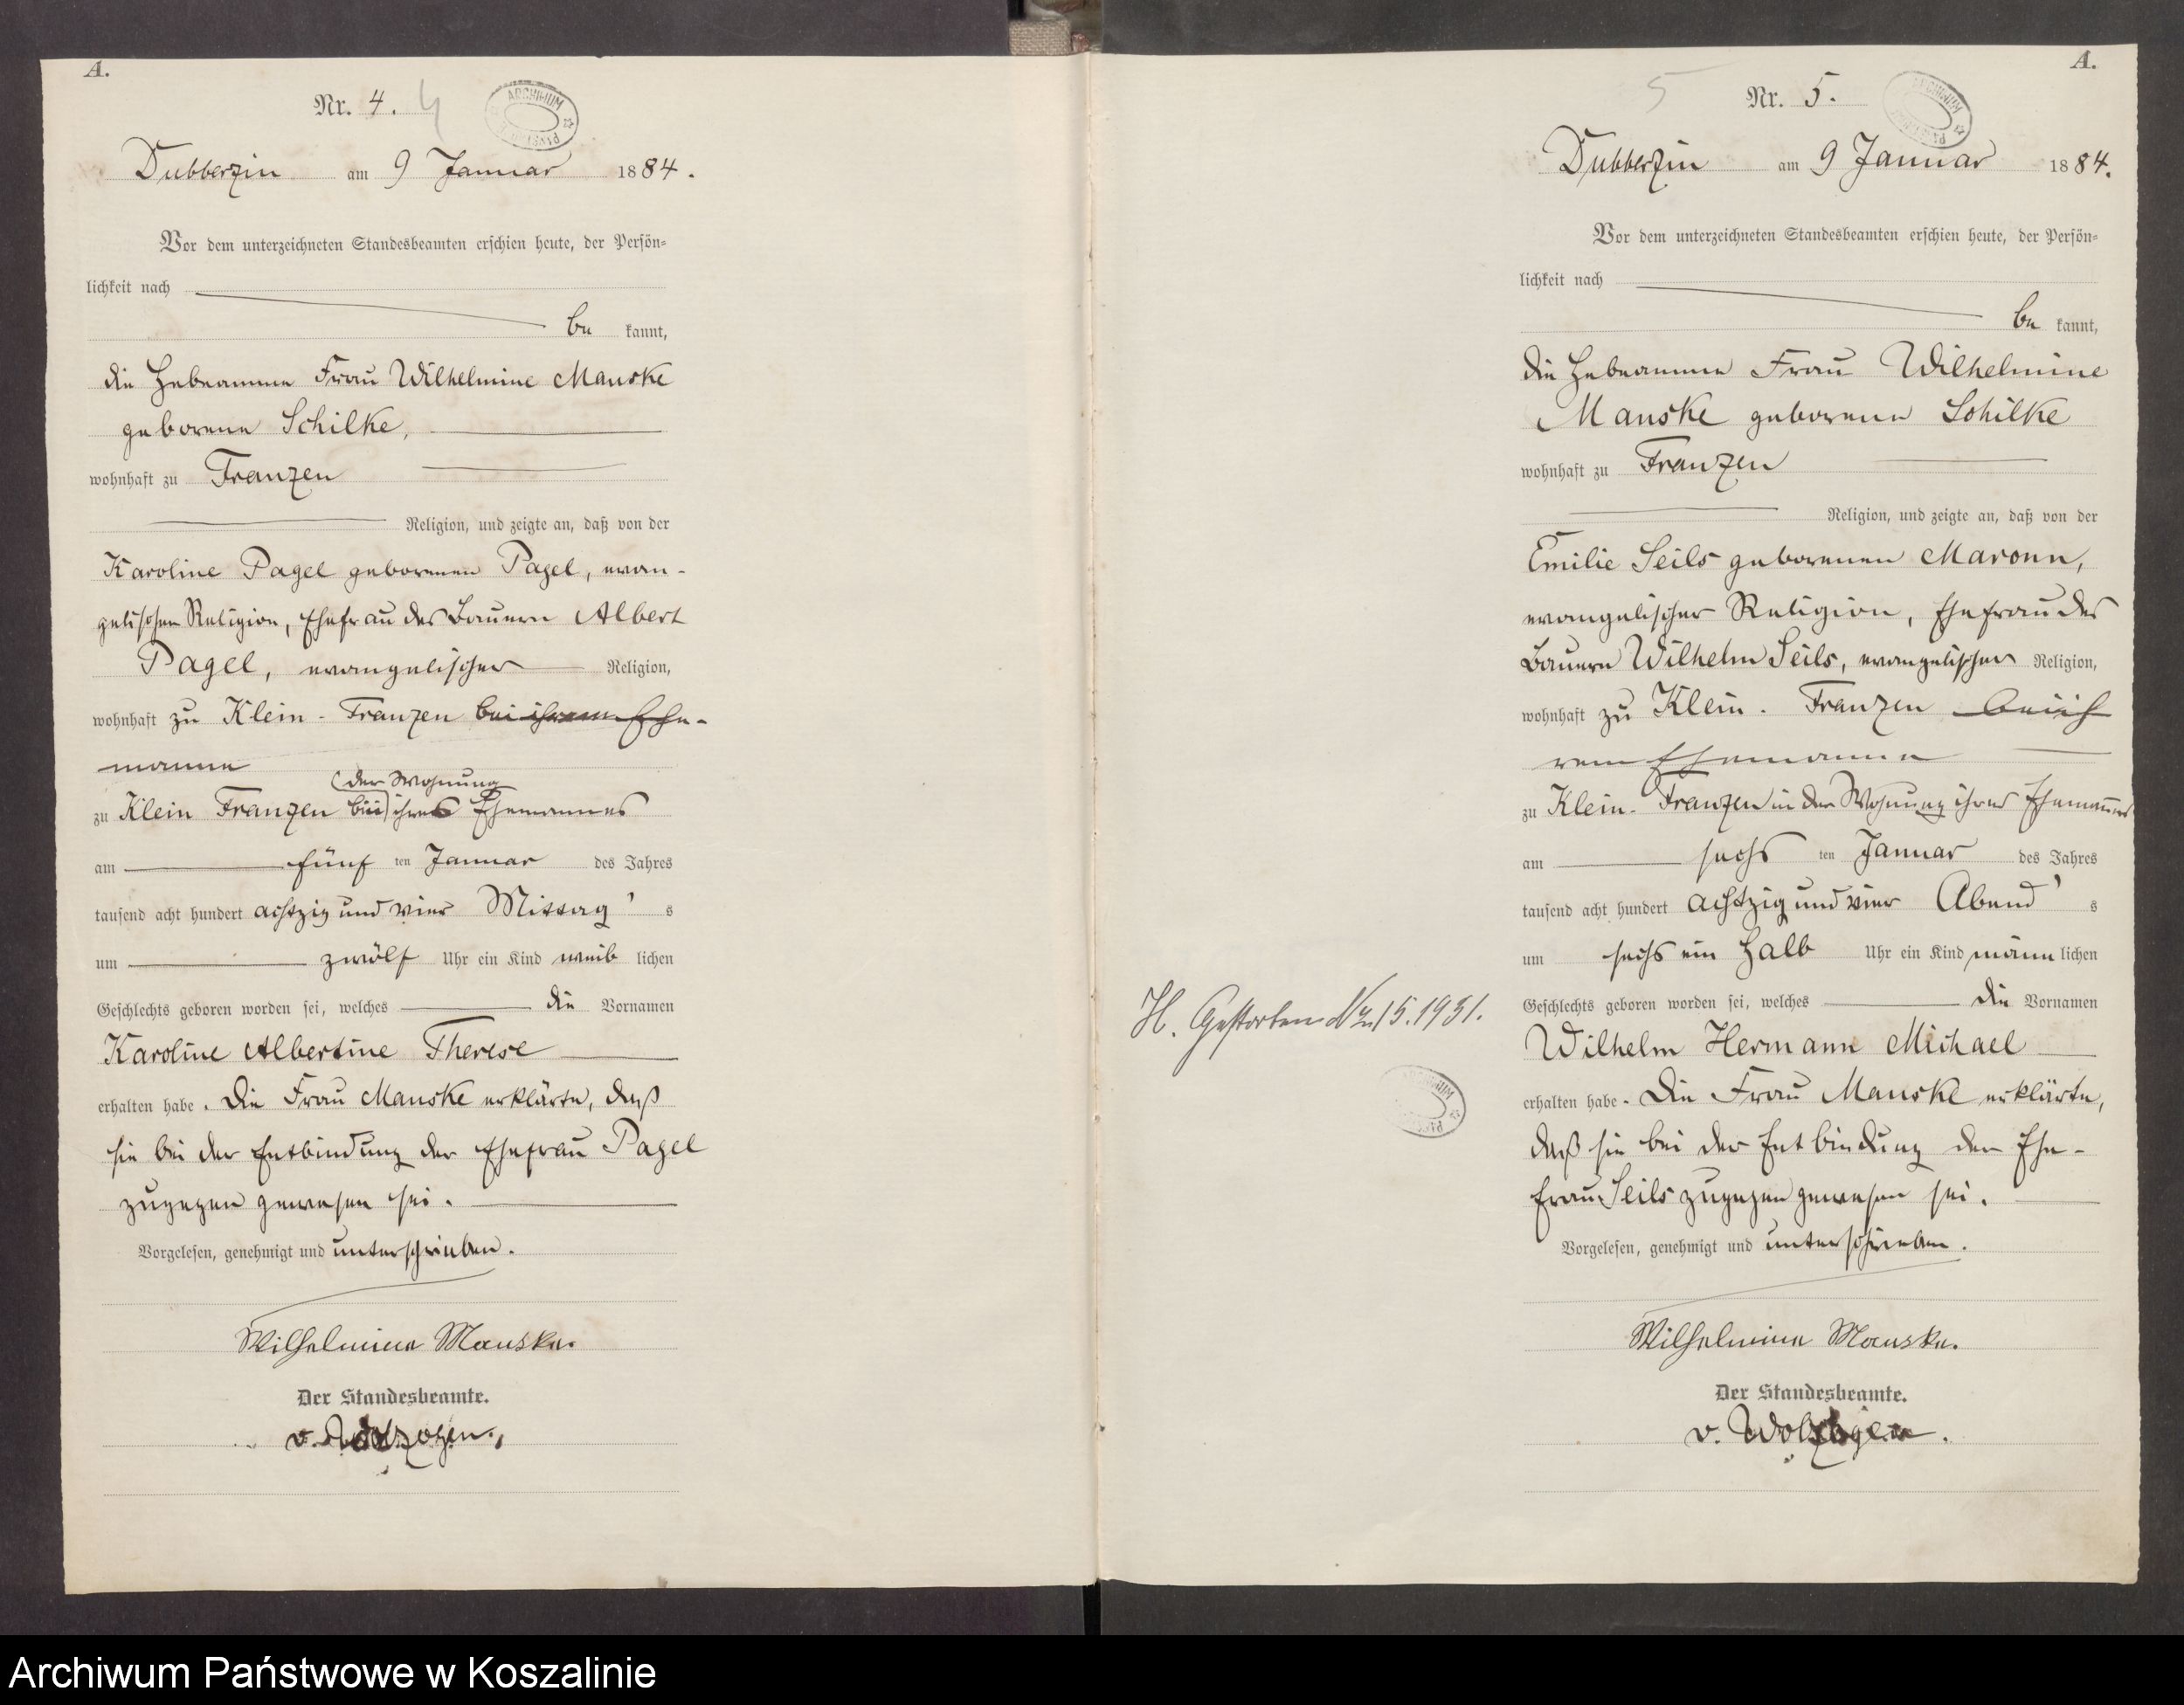 A.
Nr. 4. 4
ARCHIWUM PAŃSTWOWE
Dubberzin am 9 Januar 1884.
Vor dem unterzeichneten Standesbeamten erschien heute, der Persön=
lichkeit nach
be kannt,
die Hebeamme Frau Wilhelmine Manske
geborene Schilke,
wohnhaft zu Franzen
Religion, und zeigte an, daß von der
Karoline Pagel geborenen Pagel, evan-
gelischen Religion, Ehefrau des Bauern Albert
Pagel, evangelischer Religion,
wohnhaft zu Klein-Franzen bei ihrem Ehe-
manne
(der Wohnung
zu Klein Franzen bei) ihres Ehemannes
am fünf ten Januar des Jahres
tausend acht hundert achtzig und vier Mittag's
um zwölf Uhr ein Kind weib lichen
Geschlechts geboren worden sei, welches die Vornamen
Karoline Albertine Therese
erhalten habe. Die Frau Manske erklärte, daß
sie bei der Entbindung der Ehefrau Pagel
zugegen gewesen sei.
Vorgelesen, genehmigt und unterschrieben.
Wilhelmine Manske.
Der Standesbeamte.
v. Wolzogen.
A.
5 Nr. 5.
Dubberzin am 9 Januar 1884.
Vor dem unterzeichneten Standesbeamten erschien heute, der Persön=
lichkeit nach
be kannt,
die Hebeamme Frau Wilhelmine
Manske geborene Schilke
wohnhaft zu Franzen
Religion, und zeigte an, daß von der
Emilie Seils geborenen Maronn,
evangelischer Religion, Ehefrau des
Bauern Wilhelm Seils, evangelischer Religion,
wohnhaft zu Klein-Franzen bei ih
rem Ehemanne
zu Klein-Franzen in der Wohnung ihres Ehemannes
am sechs ten Januar des Jahres
tausend acht hundert achtzig und vier Abend's
um sechs ein halb Uhr ein Kind männ lichen
Geschlechts geboren worden sei, welches die Vornamen
H. Gestorben Nr. 15.1931.
Wilhelm Hermann Michael
erhalten habe. Die Frau Manske erklärte,
daß sie bei der Entbindung der Ehe-
frau Seils zugegen gewesen sei.
Vorgelesen, genehmigt und unterschrieben.
Wilhelmine Manske.
Der Standesbeamte.
v. Wolzogen.
Archiwum Państwowe w Koszalinie